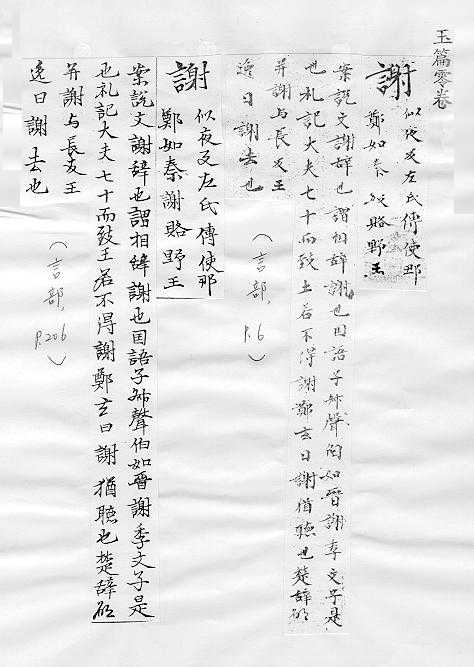 玉篇零卷
謝
似夜反左氏傳使那
鄭如秦謝賂野王
案說文謝辞也謂相辞謝也囯語子𠦑聲伯如晋謝季文子是
也礼記大夫七十而致王若不得謝鄭玄曰謝猶聴也楚辞
并謝与長友王
逸曰謝去也
(言部, P.6)
謝
似夜反左氏傳使那
鄭如秦謝賂野王
案說文謝辞也謂相辞謝也囯語子𠦑聲伯如晋謝季文子是
也礼記大夫七十而致王若不得謝鄭玄曰謝猶聴也楚辞
并謝与長友王
逸曰謝去也
(言部, P.206)